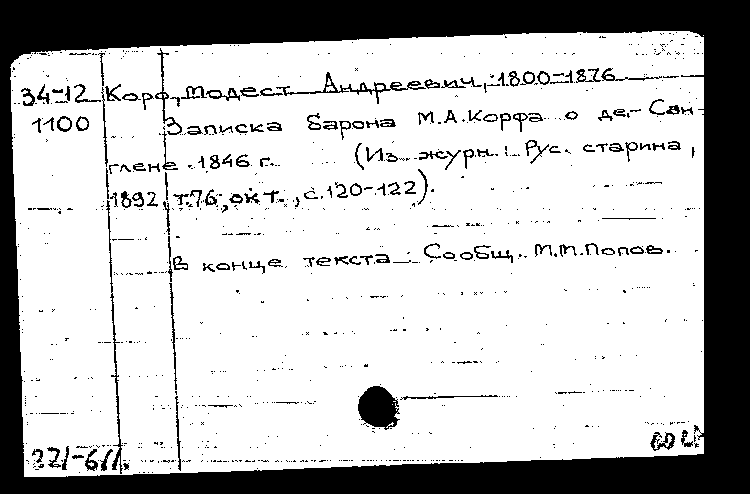 34-12 Корф, Модест Андреевич, 1800-1876
1100 Записка барона М.А.Корфа о де-Сан-
глене 1846 г. (Из журн.: Рус. старина,
1892, т.76, окт., с.120-122).
В конце текста: Сообщ. М.М.Попов.